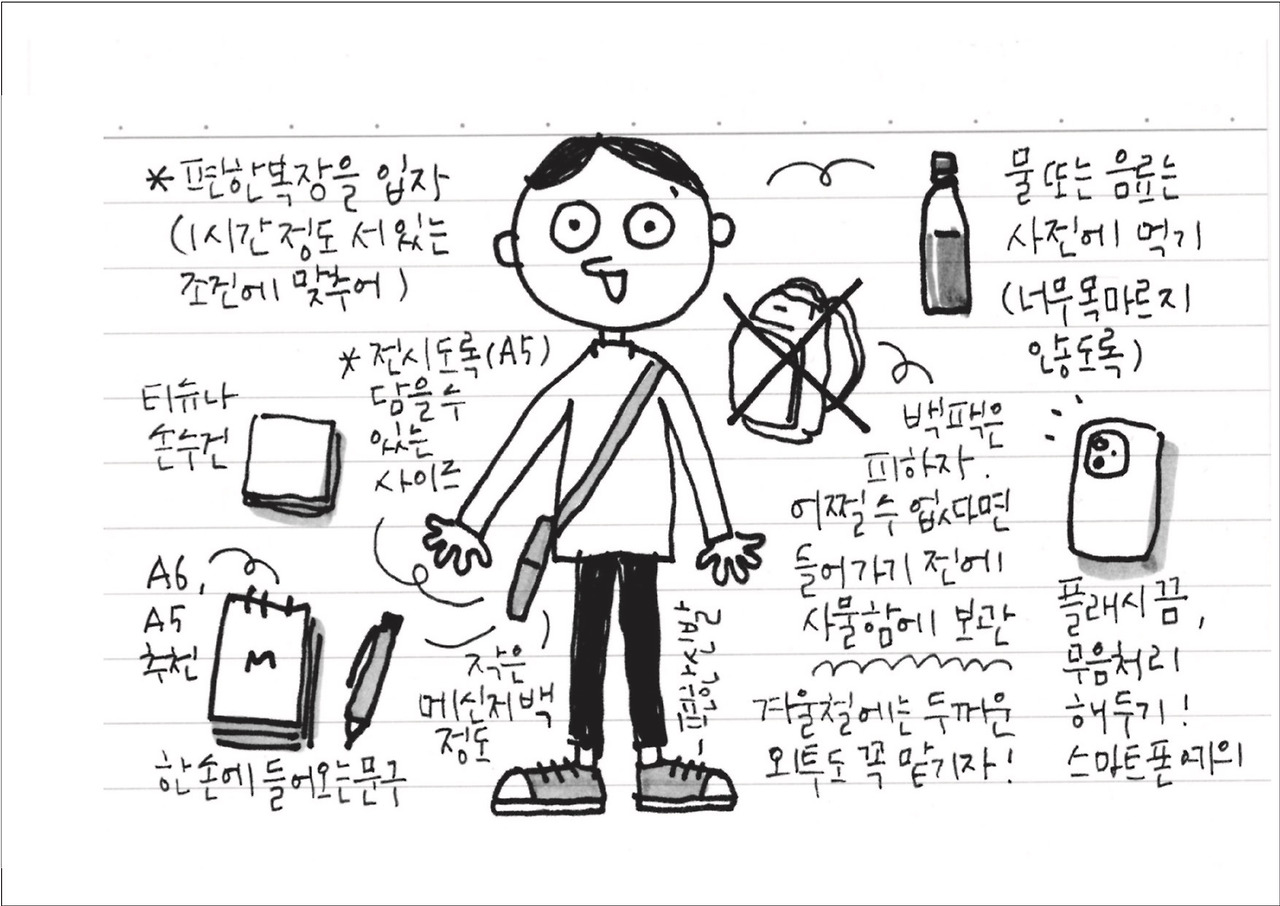 * 편한복장을 입자
(1시간 정도 서 있는
조건에 맞추어)
* 전시도록(A5)
담을 수
있는
사이즈
티슈나
손수건
A6,
A5
추천
M
한 손에 들어오는 문구
작은
메신저백
정도
물 또는 음료는
사전에 먹기
(너무 목마르지
않도록)
백팩은
피하자.
어쩔 수 없다면
들어가기 전에
사물함에 보관
겨울철에는 두꺼운
외투도 꼭 맡기자!
플래시 끔,
무음처리
해두기!
스마트폰 예의